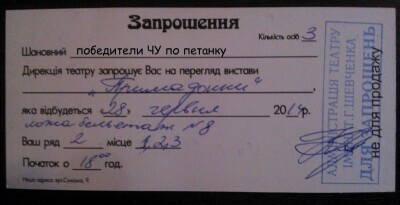 Запрошення
Кількість осіб 3
Шановний победители ЧУ по петанку
Дирекція театру запрошує Вас на перегляд вистави
"Примадонни"
яка відбудеться 28 червня 2014р.
ложа бельетаж №8
Ваш ряд 2 місце 1,2,3
Початок о 18 00 год.
Наша адреса: вул.Сумська, 9.
АДМІНІСТРАЦІЯ ТЕАТРУ
ІМ. Т.Г. ШЕВЧЕНКА
ДЛЯ ЗАПРОШЕНЬ
не для продажу